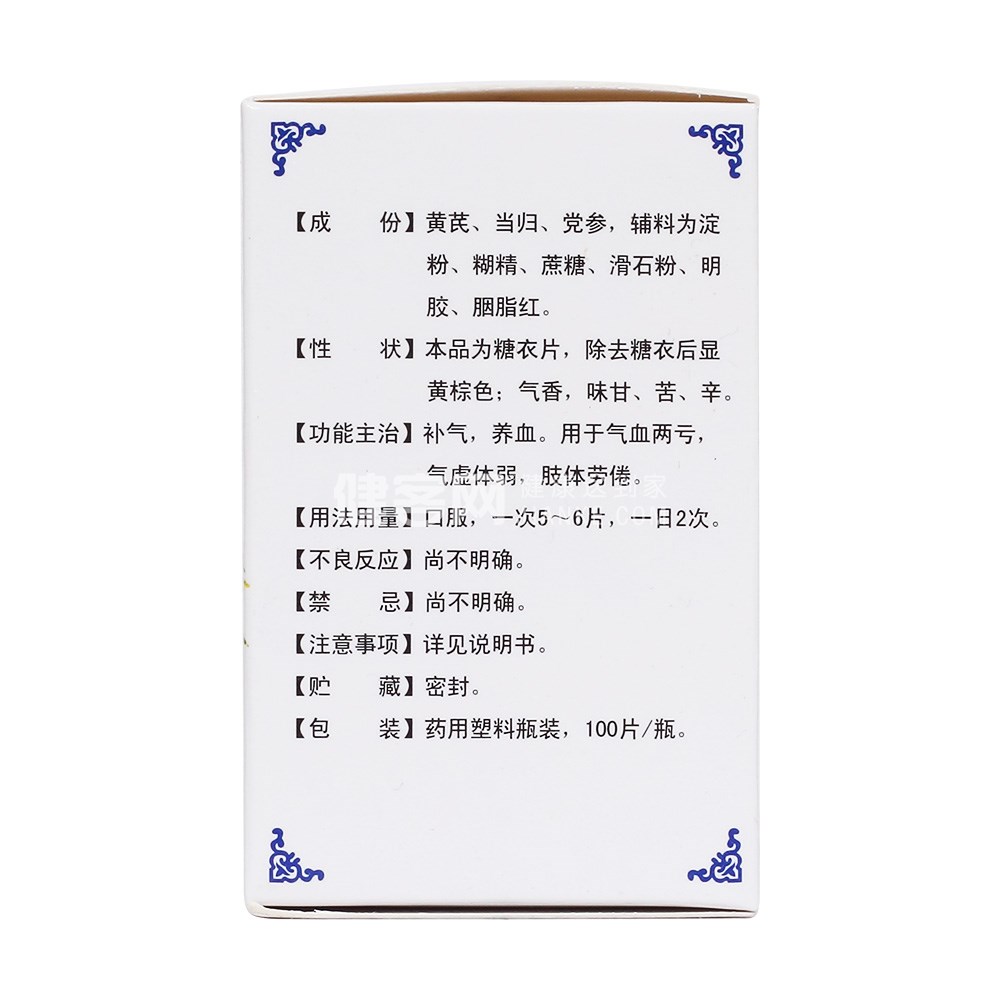 【成 份】黄芪、当归、党参，辅料为淀
粉、糊精、蔗糖、滑石粉、明
胶、胭脂红。
【性 状】本品为糖衣片，除去糖衣后显
黄棕色；气香，味甘、苦、辛。
【功能主治】补气，养血。用于气血两亏，
气虚体弱，肢体劳倦。
健客网 健康送到家
【用法用量】口服，一次5～6片，一日2次。
【不良反应】尚不明确。
【禁 忌】尚不明确。
【注意事项】详见说明书。
【贮 藏】密封。
【包 装】药用塑料瓶装，100片/瓶。